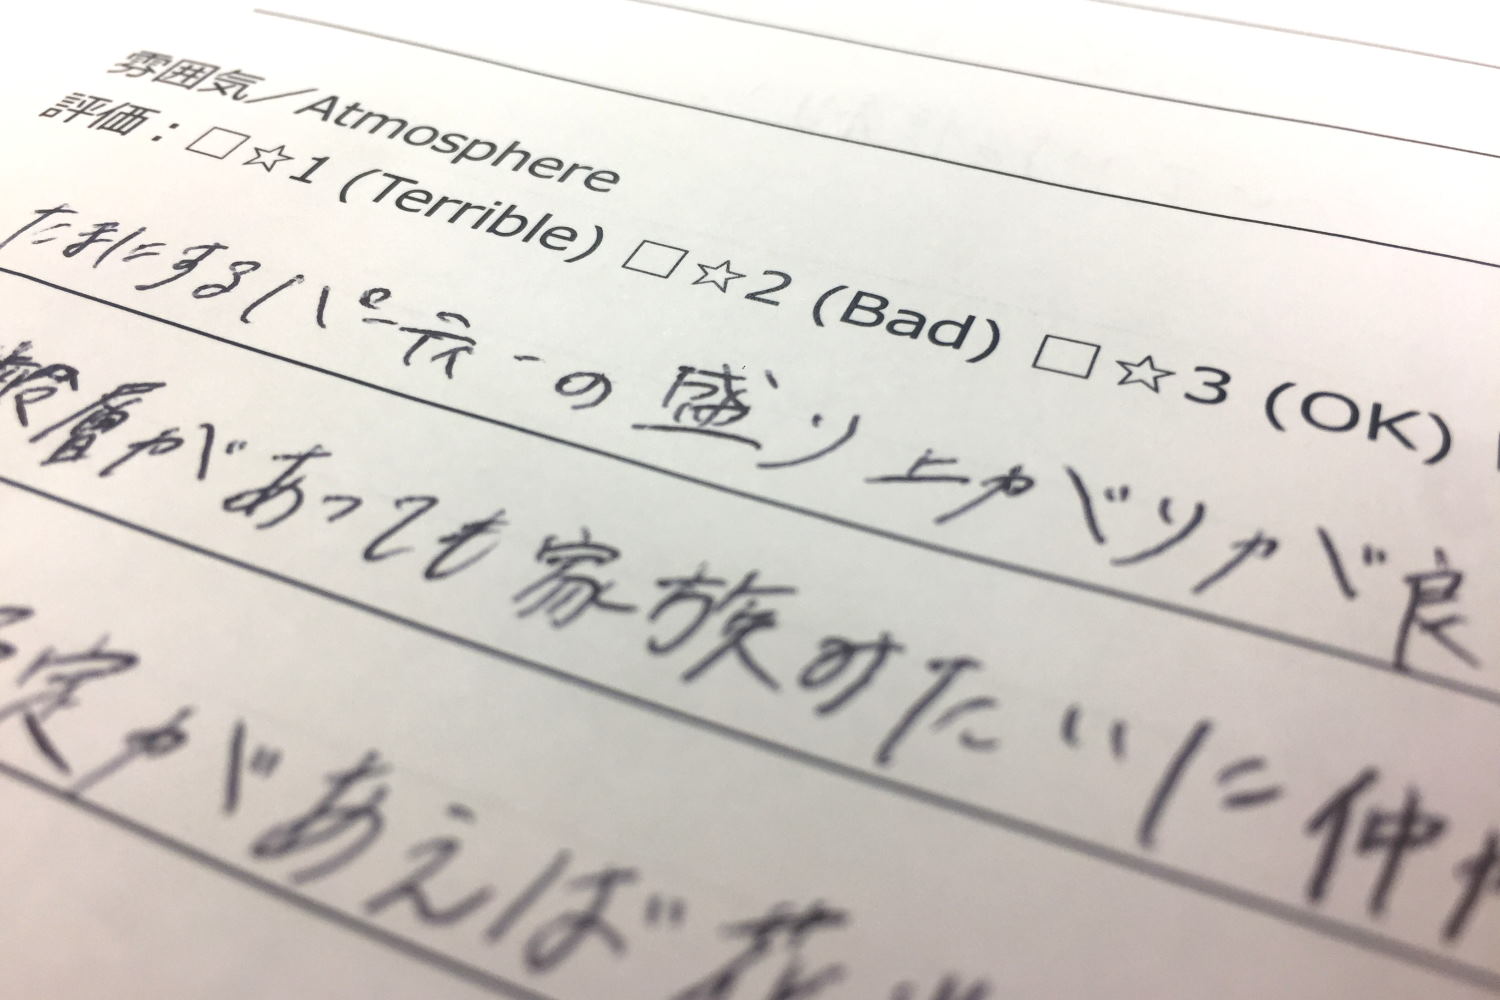 雰囲気／Atmosphere
評価：□☆1 (Terrible) □☆2 (Bad) □☆3 (OK)
たまにするパーティーの盛り上がりが良
齢層があっても家族みたいに仲
定があえば